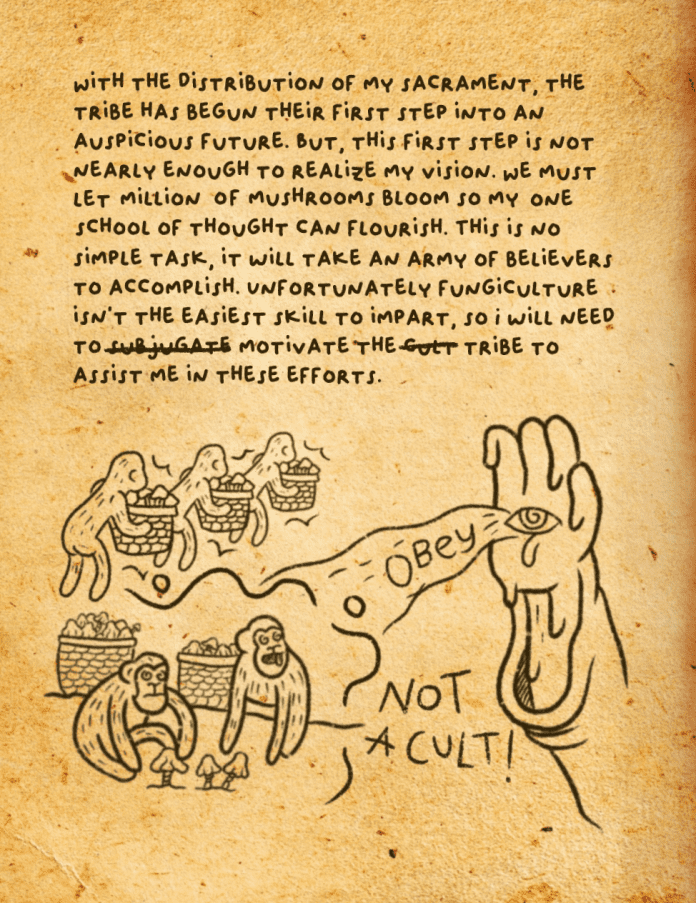 WITH THE DISTRIBUTION OF MY SACRAMENT, THE
TRIBE HAS BEGUN THEIR FIRST STEP INTO AN
AUSPICIOUS FUTURE. BUT, THIS FIRST STEP IS NOT
NEARLY ENOUGH TO REALIZE MY VISION. WE MUST
LET MILLION OF MUSHROOMS BLOOM SO MY ONE
SCHOOL OF THOUGHT CAN FLOURISH. THIS IS NO
SIMPLE TASK, IT WILL TAKE AN ARMY OF BELIEVERS
TO ACCOMPLISH. UNFORTUNATELY FUNGICULTURE
ISN'T THE EASIEST SKILL TO IMPART, SO I WILL NEED
TO SUBJUGATE MOTIVATE THE CULT TRIBE TO
ASSIST ME IN THESE EFFORTS.
OBEY
NOT
A CULT!